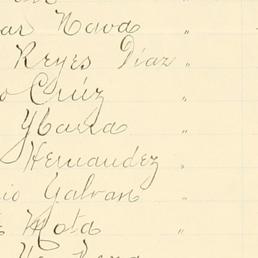 ar Nava "
Reyes Diaz "
o Crúz "
Ybarra "
Hernandez "
io Galvan "
Mota "